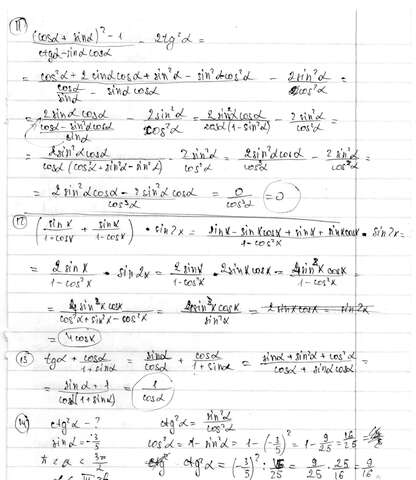 11) ((cosα + sinα)² - 1)/(ctgα - sinα cosα) - 2tg²α =
= (cos²α + 2 sinα cosα + sin²α - sin²α - cos²α)/(cosα/sinα - sinα cosα) - 2sin²α/cos²α =
= (2sinα cosα)/((cosα - sin²α cosα)/sinα) - 2sin²α/cos²α = (2sin²α cosα)/(cosα(1 - sin²α)) - 2sin²α/cos²α =
= (2sin²α cosα)/(cosα(cos²α + sin²α - sin²α)) - 2sin²α/cos²α = (2sin²α cosα)/cos³α - 2sin²α/cos²α =
= (2sin²α cosα - 2sin²α cosα)/cos³α = 0/cos³α = 0
12) (sinx/(1+cosx) + sinx/(1-cosx)) · sin2x = (sinx - sinx cosx + sinx + sinx cosx)/(1 - cos²x) · sin2x =
= 2sinx/(1-cos²x) · sin2x = 2sinx/(1-cos²x) · 2sinx cosx = 4sin²x cosx/(1-cos²x) =
= 4sin²x cosx/(cos²x + sin²x - cos²x) = 4sin²x cosx/sin²x =
= 4cosx
13) tgα + cosα/(1+sinα) = sinα/cosα + cosα/(1+sinα) = (sinα + sin²α + cos²α)/(cosα + sinα cosα) =
= (sinα + 1)/(cosα(1+sinα)) = 1/cosα
14) ctg²α - ? ctg²α = sin²α/cos²α
sinα = -3/5 cos²α = 1 - sin²α = 1 - (-3/5)² = 1 - 9/25 = 16/25
π < α < 3π/2 ctg²α = (-3/5)² : 16/25 = 9/25 · 25/16 = 9/16